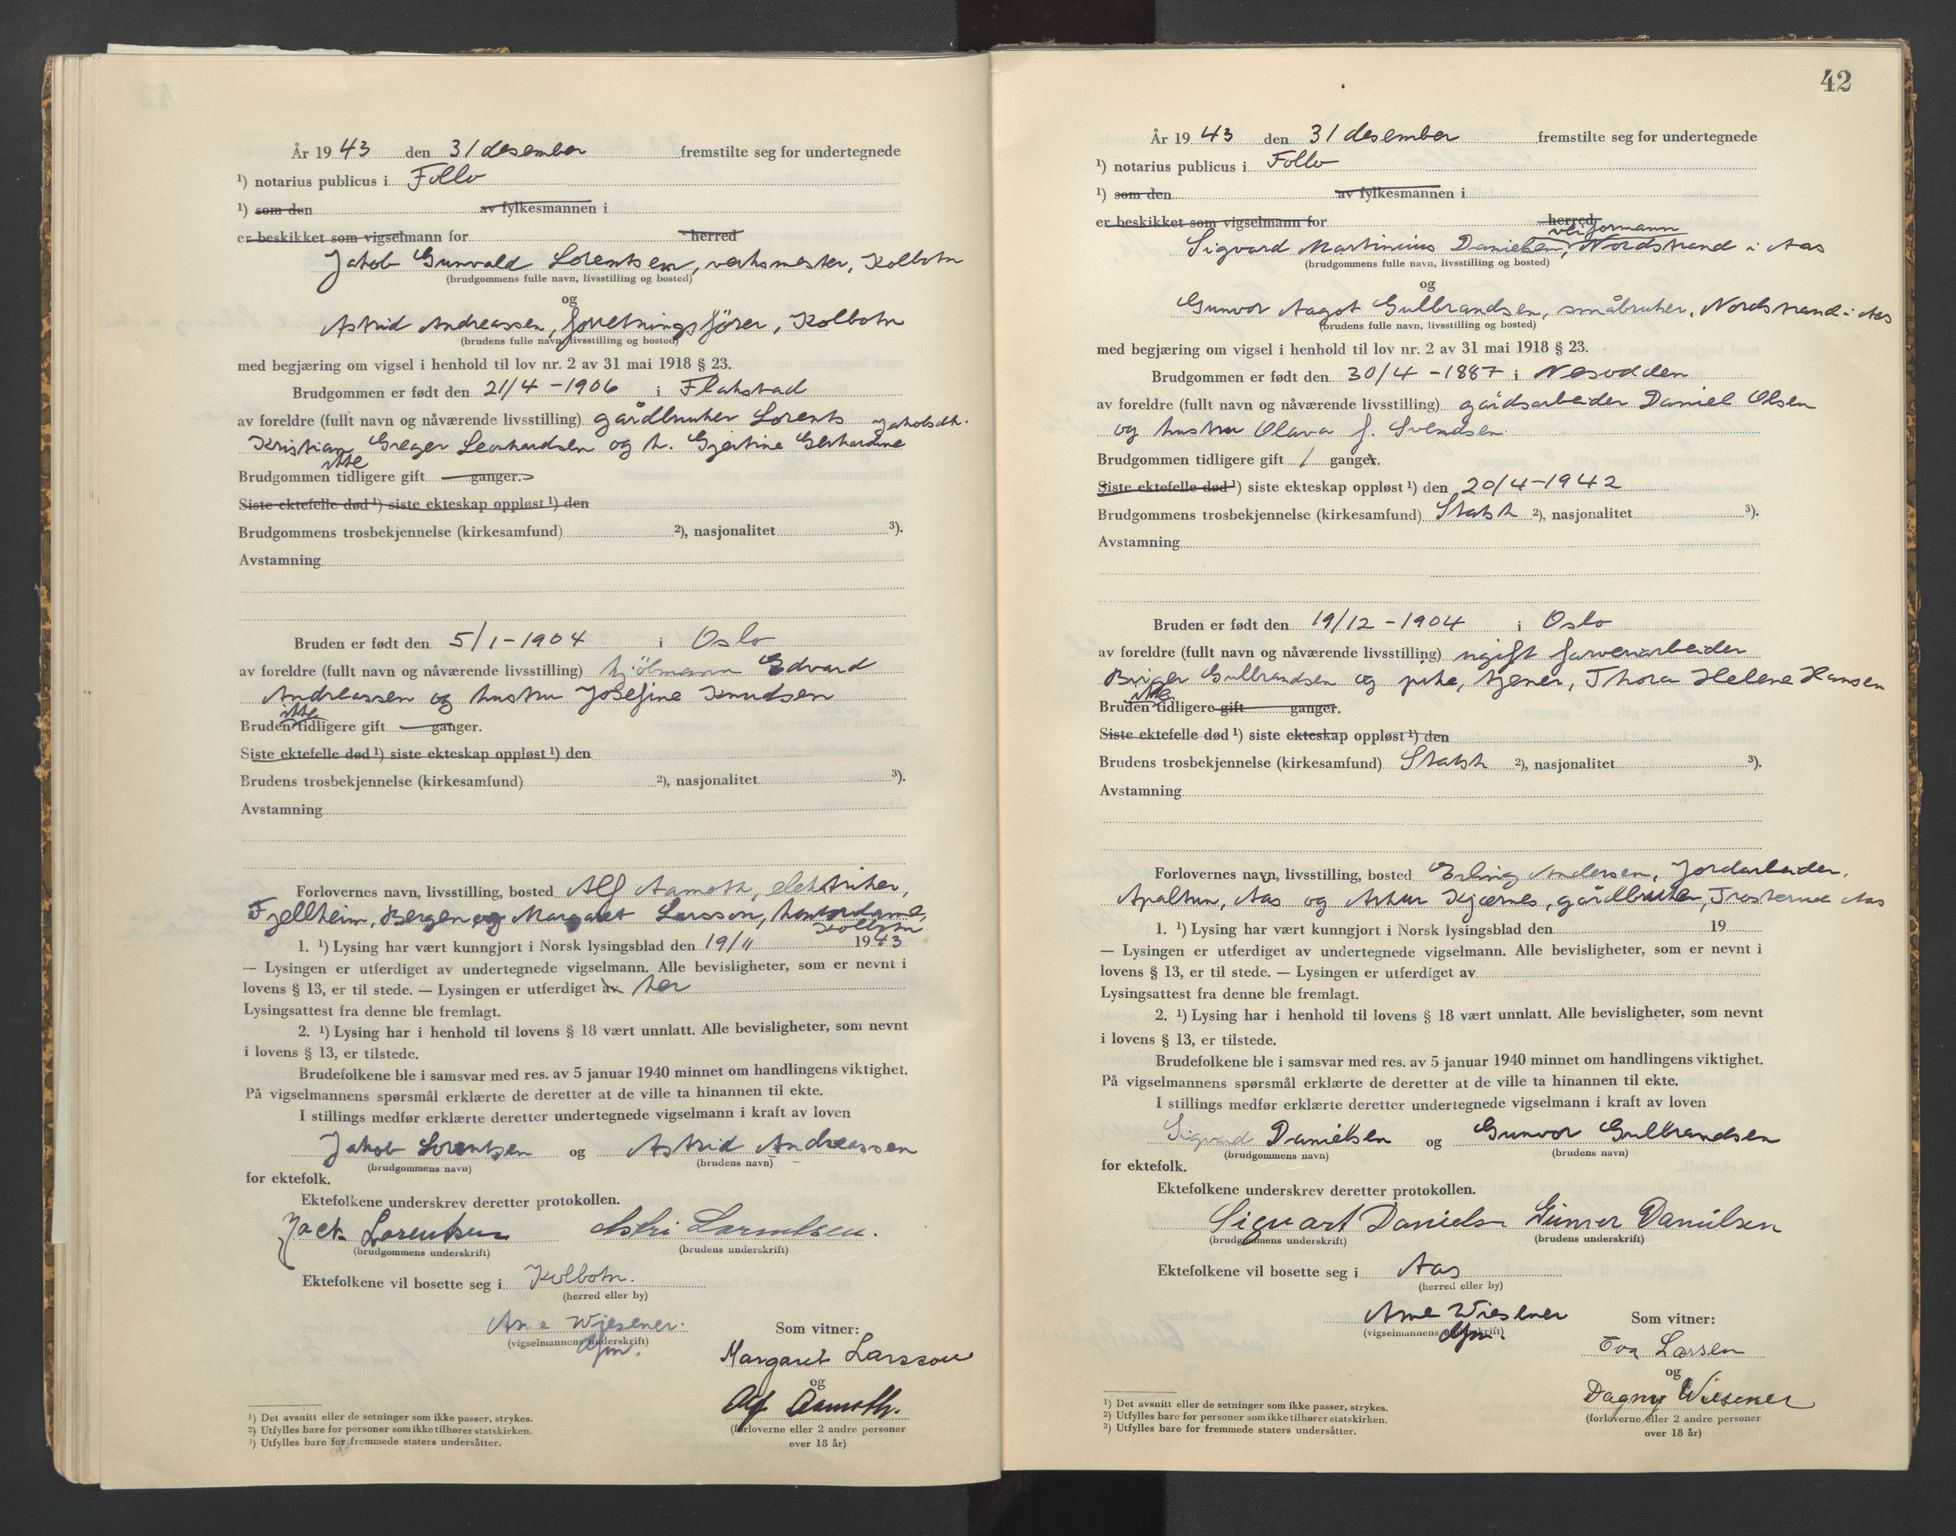 År 1943 den 31 desember fremstilte seg for undertegnede
¹) notarius publicus i Follo
¹) som den av fylkesmannen i
er beskikket som vigselmann for herred
Jakob Gunvald Lorentsen, verksmester, Kolbotn
(brudgommens fulle navn, livsstilling og bosted)
og
Astrid Andreassen, forretningsfører, Kolbotn
(brudens fulle navn, livsstilling og bosted)
med begjæring om vigsel i henhold til lov nr. 2 av 31 mai 1918 § 23.
Brudgommen er født den 21/4 - 1906 i Flakstad
av foreldre (fullt navn og nåværende livsstilling) gårdbruker Lorents
Kristian Greger Leonhardsen og h. Gjertine Gerhardine Jakobsdtr.
ikke
Brudgommen tidligere gift ganger.
Siste ektefelle død ¹) siste ekteskap oppløst ¹) den
Brudgommens trosbekjennelse (kirkesamfund) ²), nasjonalitet ³).
Avstamning
Bruden er født den 5/1 - 1904 i Oslo
av foreldre (fullt navn og nåværende livsstilling) hjölmann Edvard
Andreassen og hustru Josefine Knudsen
ikke
Bruden tidligere gift ganger.
Siste ektefelle død ¹) siste ekteskap oppløst ¹) den
Brudens trosbekjennelse (kirkesamfund) ²), nasjonalitet ³).
Avstamning
Forlovernes navn, livsstilling, bosted Alf Aamoth, elektriker,
Fjellheim, Bergen og Margaret Larsson, kontordame,
Kolbotn
1. ¹) Lysing har vært kunngjort i Norsk lysingsblad den 19/11 1943
— Lysingen er utferdiget av undertegnede vigselmann. Alle bevisligheter, som er nevnt i
lovens § 13, er til stede. — Lysingen er utferdiget av her
Lysingsattest fra denne ble fremlagt.
2. ¹) Lysing har i henhold til lovens § 18 vært unnlatt. Alle bevisligheter, som nevnt
i lovens § 13, er tilstede.
Brudefolkene ble i samsvar med res. av 5 januar 1940 minnet om handlingens viktighet.
På vigselmannens spørsmål erklærte de deretter at de ville ta hinannen til ekte.
I stillings medfør erklærte deretter undertegnede vigselmann i kraft av loven
Jakob Lorentsen og Astrid Andreassen
(brudgommens navn) (brudens navn)
for ektefolk.
Ektefolkene underskrev deretter protokollen.
Jack Lorentsen Astri Lorentsen.
(brudgommens underskrift) (brudens underskrift)
Ektefolkene vil bosette seg i Kolbotn.
(herred eller by)
Arne Wiesener.
(vigselmannens underskrift)
Som vitner:
Margaret Larsson
og
Alf Aamoth.
(forloverne eller 2 andre personer
over 18 år)
¹) Det avsnitt eller de setninger som ikke passer, strykes.
²) Utfylles bare for personer som ikke tilhører statskirken.
³) Utfylles bare for fremmede staters undersåtter.
42
År 1943 den 31 desember fremstilte seg for undertegnede
¹) notarius publicus i Follo
¹) som den av fylkesmannen i
er beskikket som vigselmann for herred
veiformann
Sigvard Martinius Danielsen, Nordstrand i Aas
(brudgommens fulle navn, livsstilling og bosted)
og
Gunvor Aagot Gulbrandsen, småbruker, Nordstrand i Aas
(brudens fulle navn, livsstilling og bosted)
med begjæring om vigsel i henhold til lov nr. 2 av 31 mai 1918 § 23.
Brudgommen er født den 30/4 - 1887 i Nesodden
av foreldre (fullt navn og nåværende livsstilling) gårdsarbeider Daniel Olsen
og hustru Olava f. Svendsen.
Brudgommen tidligere gift 1 ganger.
Siste ektefelle død ¹) siste ekteskap oppløst ¹) den 20/4 - 1942
Brudgommens trosbekjennelse (kirkesamfund) Statsk ²), nasjonalitet ³).
Avstamning
Bruden er født den 19/12 - 1904 i Oslo
av foreldre (fullt navn og nåværende livsstilling) ugift farveriarbeider
Birger Gulbrandsen og pike, tjener, Thora Helene Hansen
ikke
Bruden tidligere gift ganger.
Siste ektefelle død ¹) siste ekteskap oppløst ¹) den
Brudens trosbekjennelse (kirkesamfund) Statsk ²), nasjonalitet ³).
Avstamning
Forlovernes navn, livsstilling, bosted Erling Andersen, Jordarbeider,
Apaltun, Aas og Artur Kjærnes, gårdbruker, Aas
1. ¹) Lysing har vært kunngjort i Norsk lysingsblad den 19
— Lysingen er utferdiget av undertegnede vigselmann. Alle bevisligheter, som er nevnt i
lovens § 13, er til stede. — Lysingen er utferdiget av
Lysingsattest fra denne ble fremlagt.
2. ¹) Lysing har i henhold til lovens § 18 vært unnlatt. Alle bevisligheter, som nevnt
i lovens § 13, er tilstede.
Brudefolkene ble i samsvar med res. av 5 januar 1940 minnet om handlingens viktighet.
På vigselmannens spørsmål erklærte de deretter at de ville ta hinannen til ekte.
I stillings medfør erklærte deretter undertegnede vigselmann i kraft av loven
Sigvard Danielsen og Gunvor Gulbrandsen
(brudgommens navn) (brudens navn)
for ektefolk.
Ektefolkene underskrev deretter protokollen.
Sigvart Daniels Gunvor Danielsen
(brudgommens underskrift) (brudens underskrift)
Ektefolkene vil bosette seg i Aas
(herred eller by)
Arne Wiesener
(vigselmannens underskrift)
Som vitner:
Eva Larsen
og
Dagny Wiesener
(forloverne eller 2 andre personer
over 18 år)
¹) Det avsnitt eller de setninger som ikke passer, strykes.
²) Utfylles bare for personer som ikke tilhører statskirken.
³) Utfylles bare for fremmede staters undersåtter.